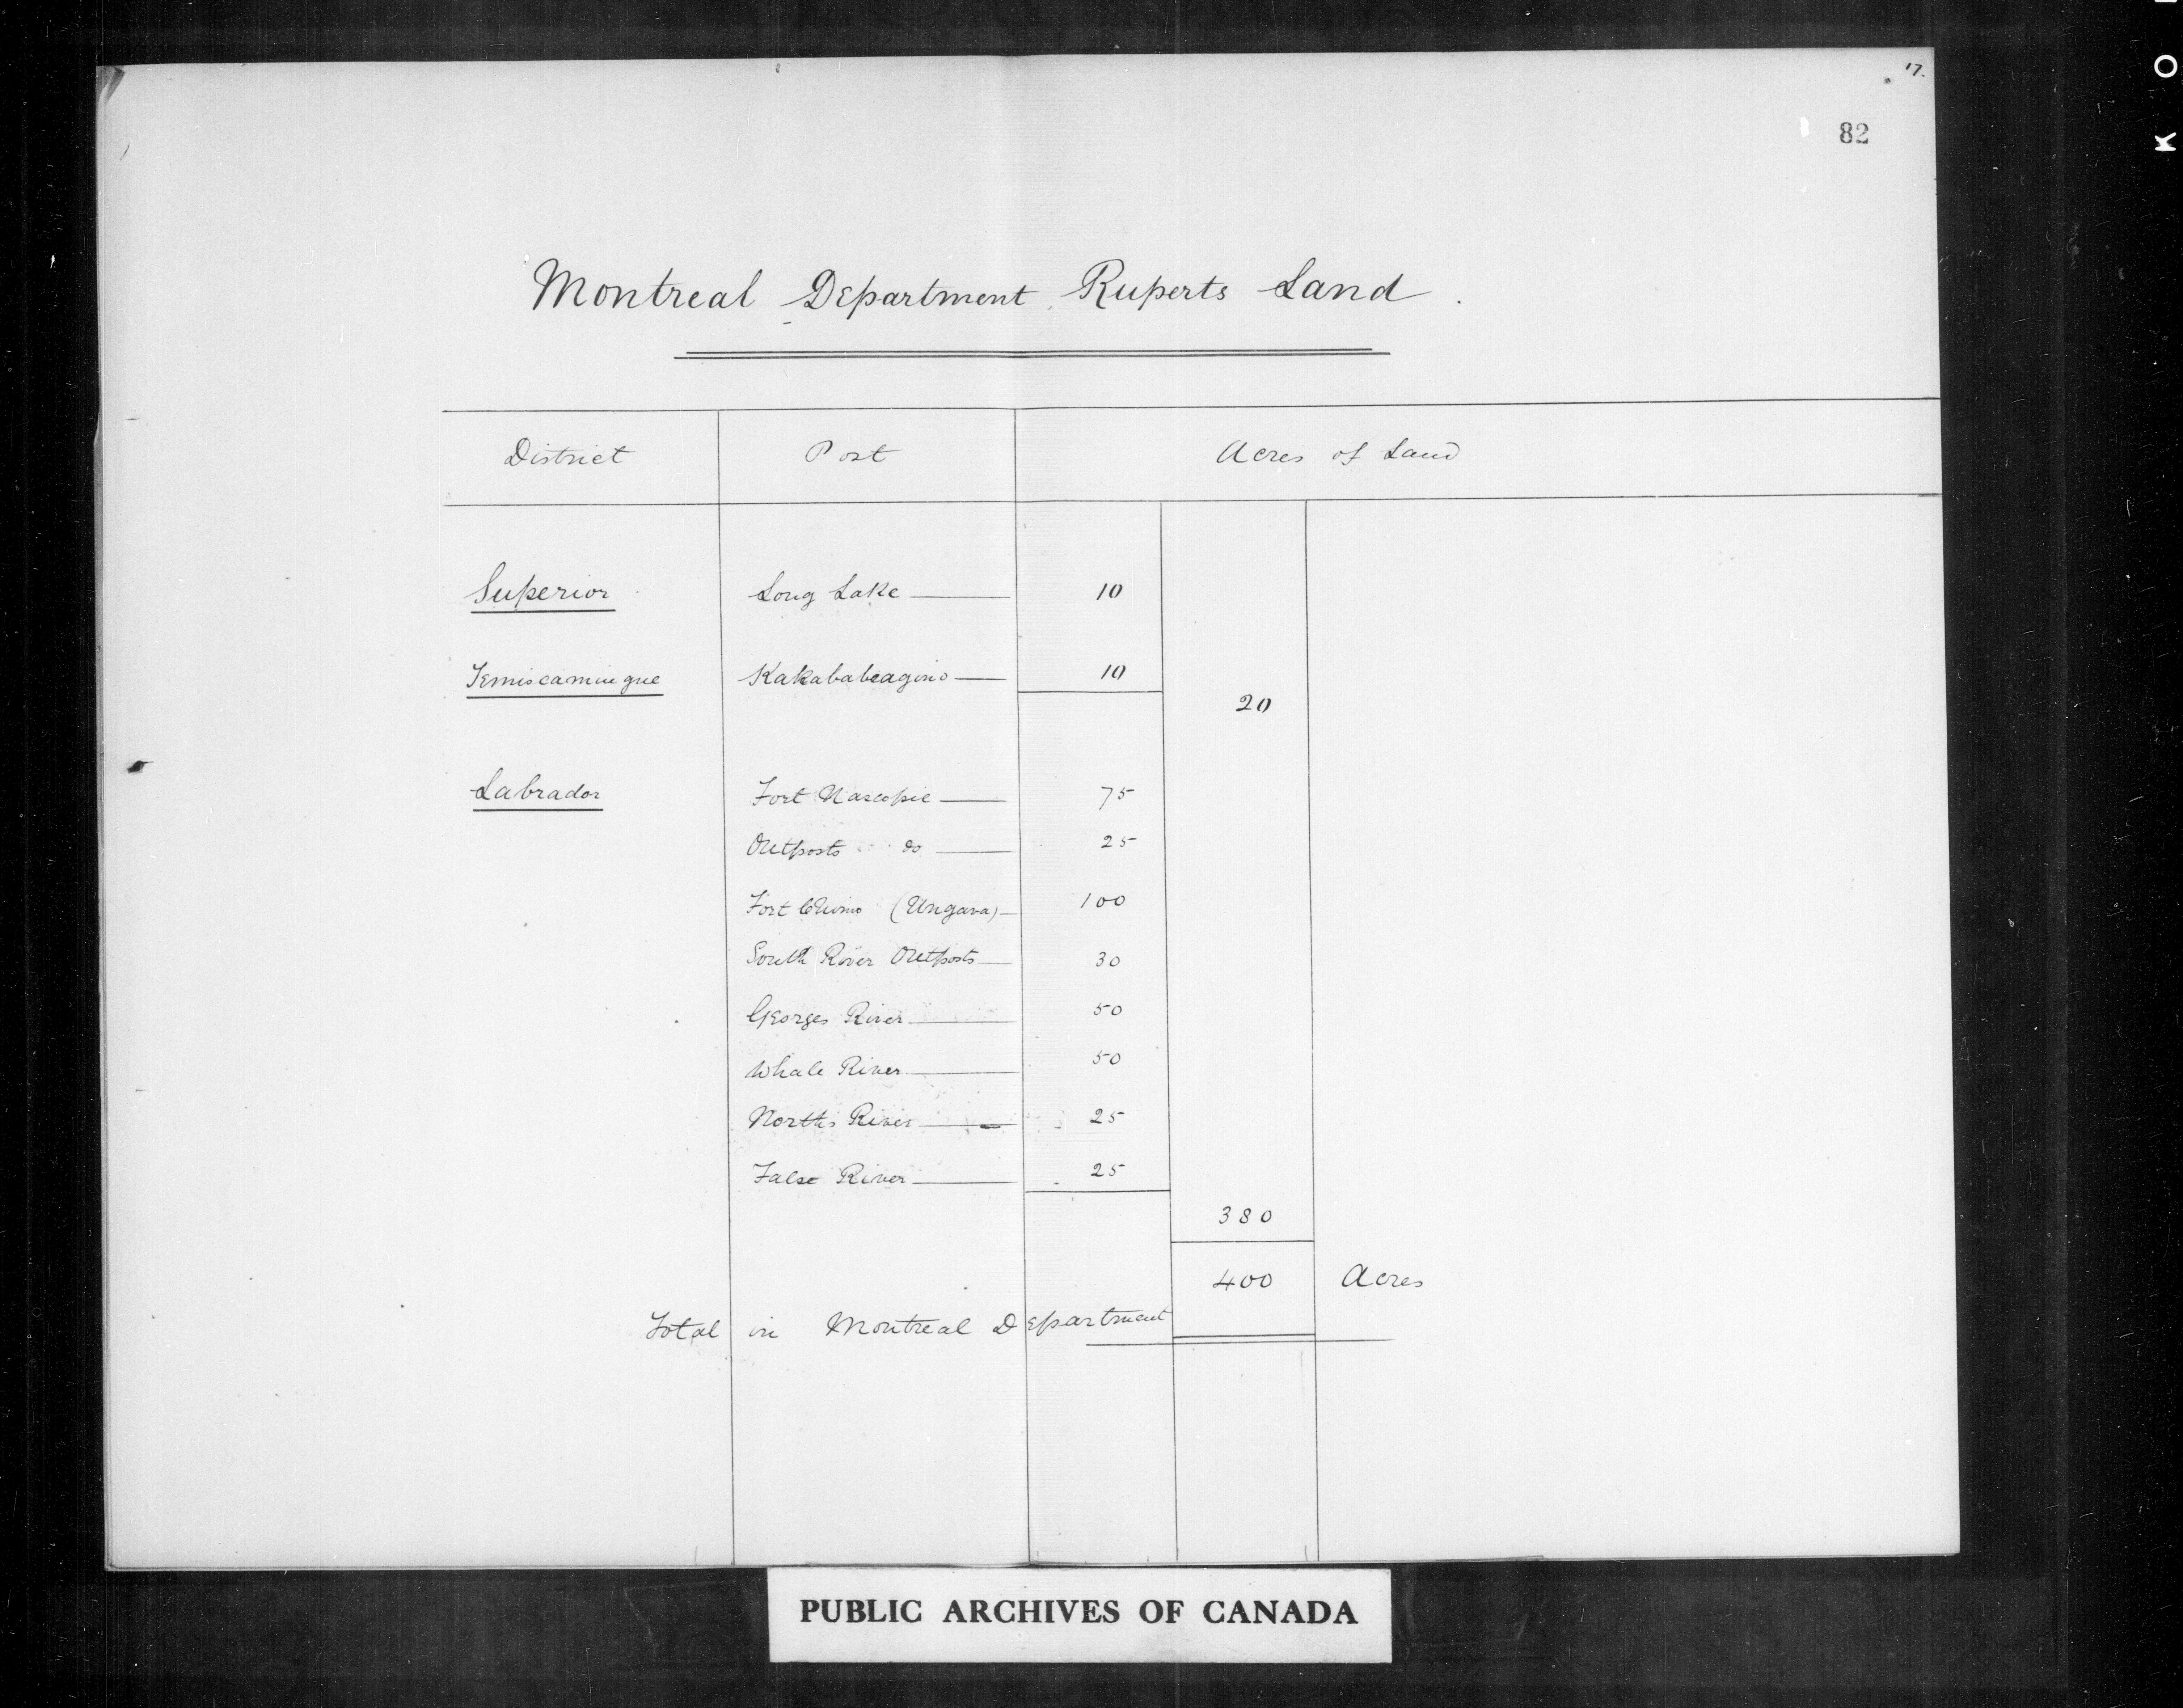 17.
82
Montreal Department, Ruperts Land.
District Post Acres of Land
Superior Long Lake 10
Temiscamingue Kakababeagino 10
20
Labrador Fort Nascopie 75
Outposts do 25
Fort Chimo (Ungava) 100
South River Outposts 30
Georges River 50
Whale River 50
North River 25
False River 25
380
400 Acres
Total in Montreal Department
PUBLIC ARCHIVES OF CANADA
K O